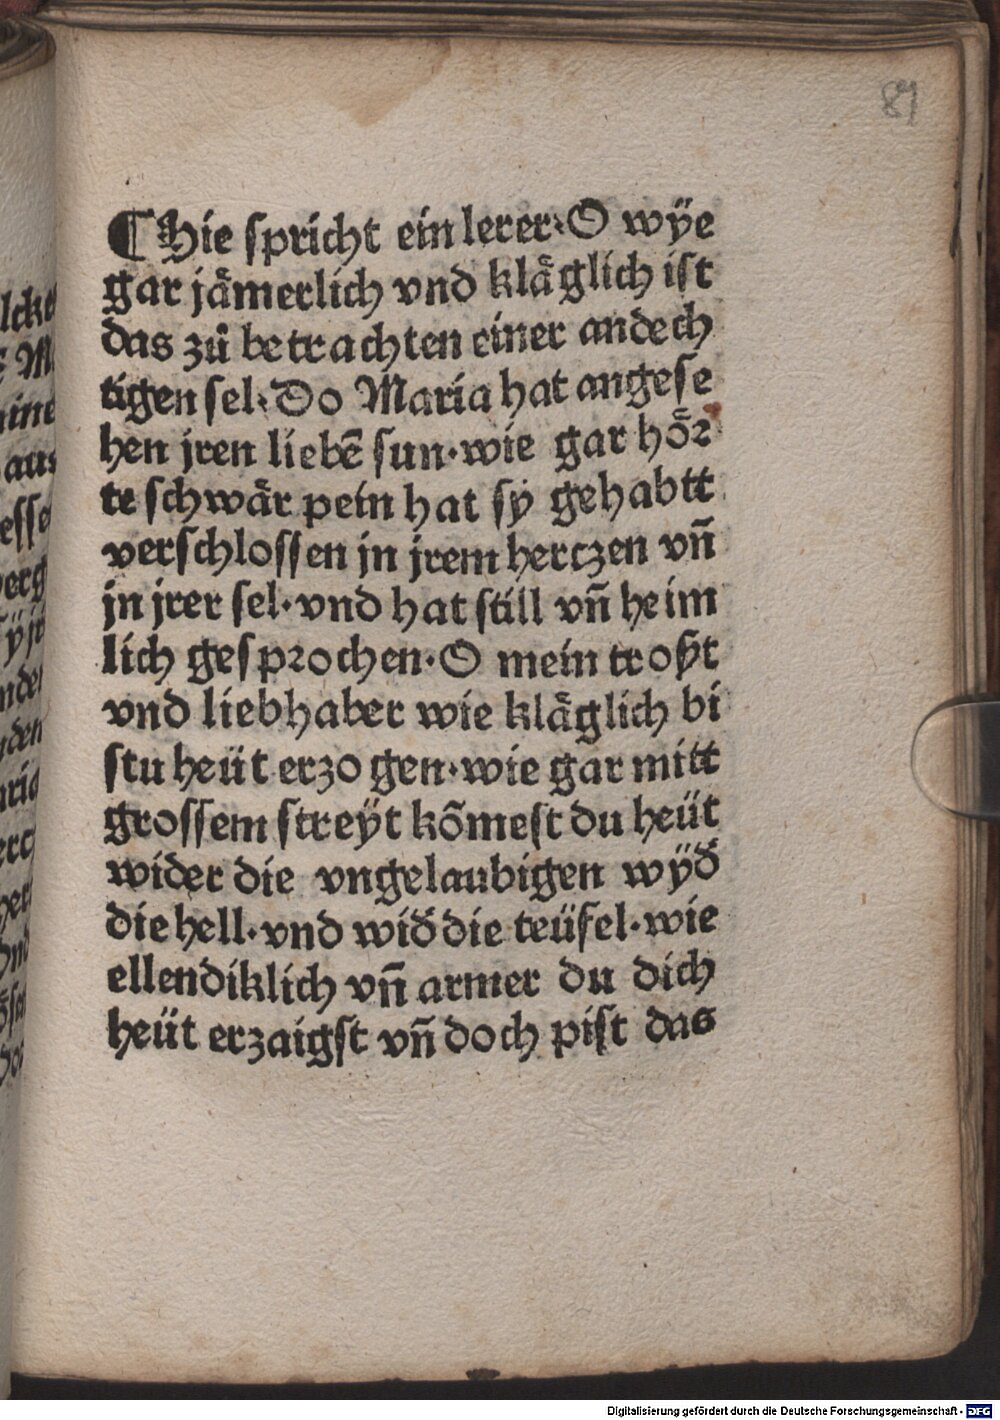 87
¶ Hie spricht ein lerer. O wÿe
gar jaͤmerlich vnd klaͤglich ist
das zuͦ betrachten einer andech
tigen sel. Do Maria hat angese
hen jren liebē sun. wie gar hoͤꝛ
te schwaͤr pein hat sÿ gehabtt
verschlossen jn jrem hertzen vn̄
jn jrer sel. vnd hat still vn̄ heim
lich gespꝛochen. O mein troßt
vnd liebhaber wie klaͤglich bi
stu heüt erzogen. wie gar mitt
grossem streÿt kōmest du heüt
wider die vngelaubigen wÿd̾
die hell. vnd wid̾ die teüfel. wie
ellendiklich vn̄ armer du dich
heüt erzaigst vn̄ doch pist das
Digitalisierung gefördert durch die Deutsche Forschungsgemeinschaft - DFG